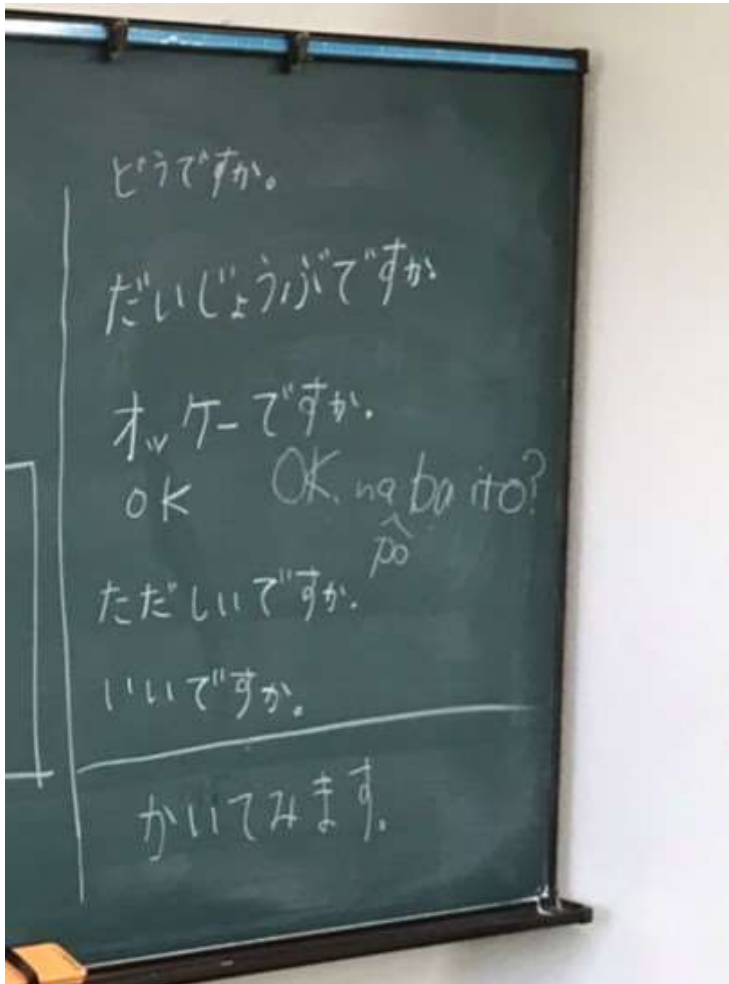 どうですか。
だいじょうぶですか。
オッケーですか。
OK OK na ba ito?
po
ただしいですか。
いいですか。
かいてみます。